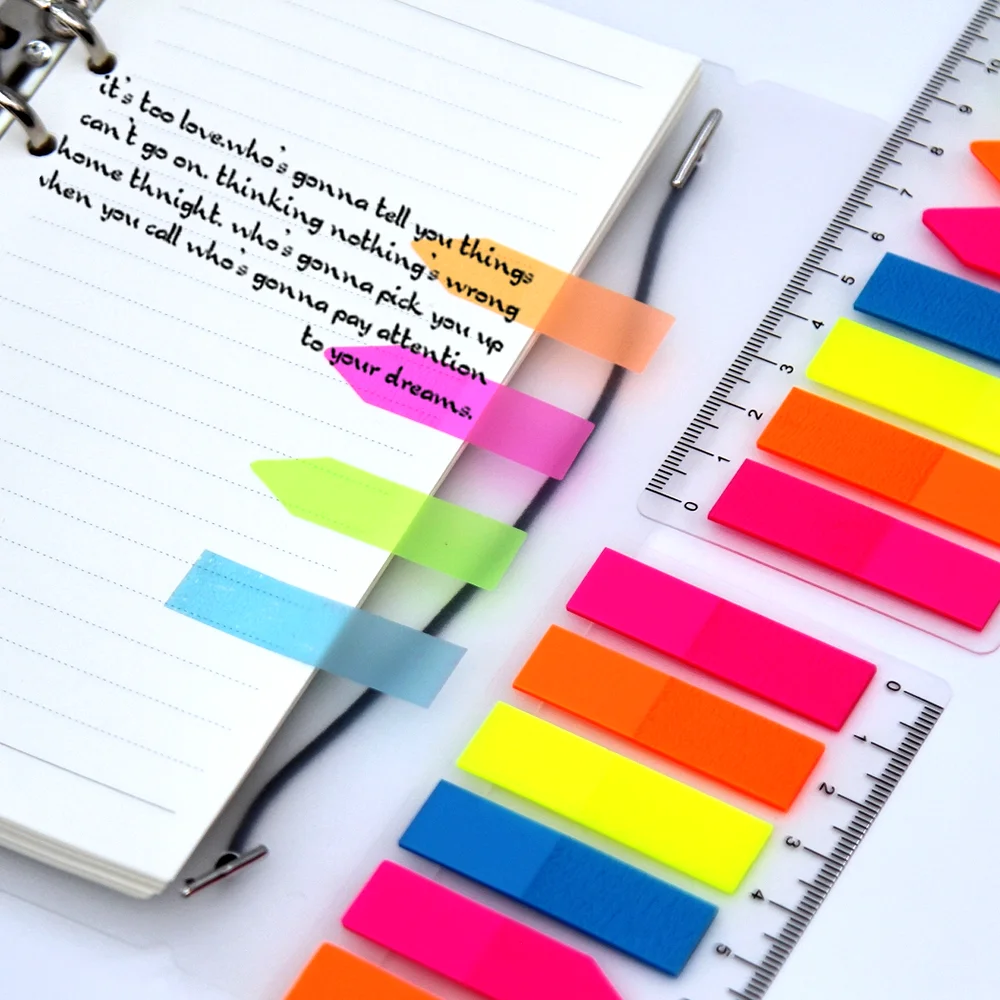 it's too love.who's gonna tell you things
can't go on. thinking nothing's wrong
home thnight. who's gonna pick you up
when you call who's gonna pay attention
to your dreams.
10 9 8 7 6 5 4 3 2 1 0
0 1 2 3 4 5